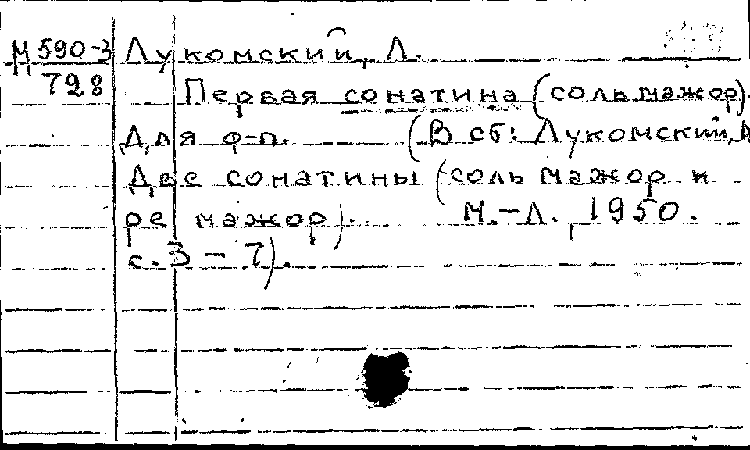 М 590-3 Лукомский, Л.
798 Первая сонатина (соль мажор).
Для ф-п. (В сб: Лукомский, Л
Две сонатины (соль мажор и
ре мажор). М.-Л., 1950.
с. 3 - 7).